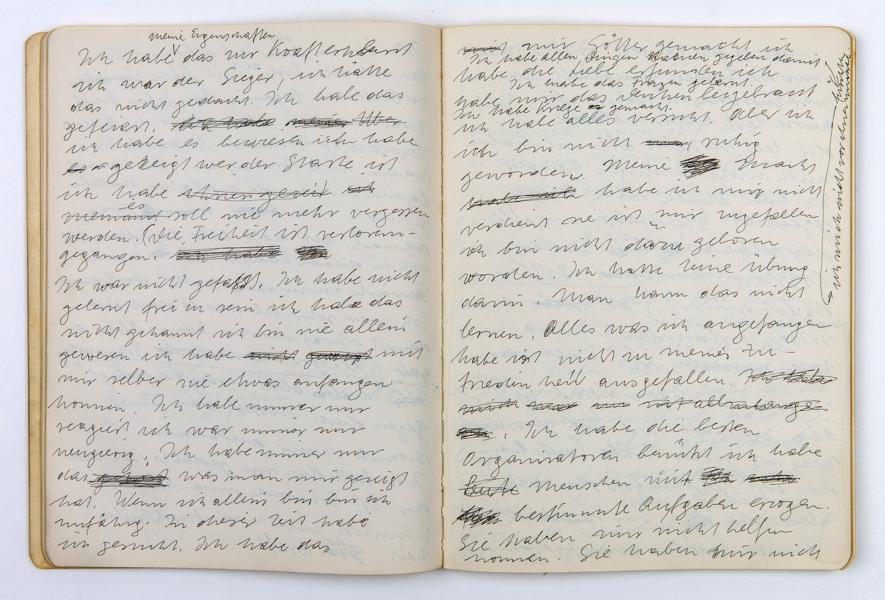 meine Eigenschaften
Ich habe das nur
ich war der Sieger, ich hatte
das nicht gedacht. Ich habe das
gefeiert. Ich habe meine Über
ich habe es bewiesen ich habe
gezeigt wer der Starke ist
ich habe
es
niemand soll nie mehr vergessen
werden. (Die Freiheit ist verloren-
gegangen. Ich habe
Ich war nicht gefaßt. Ich habe nicht
gelernt frei zu sein ich habe das
nicht gekannt ich bin nie allein
gewesen ich habe nicht gewusst mit
mir selber nie etwas anfangen
können. Ich habe immer nur
reagiert ich war immer nur
neugierig. Ich habe immer nur
das was man mir gezeigt
hat. Wenn ich allein bin bin ich
unfähig. In dieser Zeit habe
ich gesucht. Ich habe das
mir Götter gemacht ich
Ich habe allen Dingen Namen gegeben damit
habe die Liebe erfunden ich
Ich habe das Fragen gelernt.
habe mir das Denken beigebracht
Ich habe Kriege gemacht.
ich habe alles versucht. Aber ich
ich bin nicht ruhig
geworden. Meine Macht
habe ich habe ich mir nicht
verdient sie ist mir zugefallen
ich bin nicht dazu geboren
worden. Ich hatte keine Übung
darin. Man kann das nicht
lernen. Alles was ich angefangen
habe ist nicht zu meiner Zu-
friedenheit ausgefallen. Ich habe
mich
Ich habe die besten
Organisatoren benützt ich habe
Leute Menschen mit
bestimmte Aufgaben erzogen.
Sie haben mir nicht helfen
können. Sie haben mir nicht
ich mich nicht vor ihnen